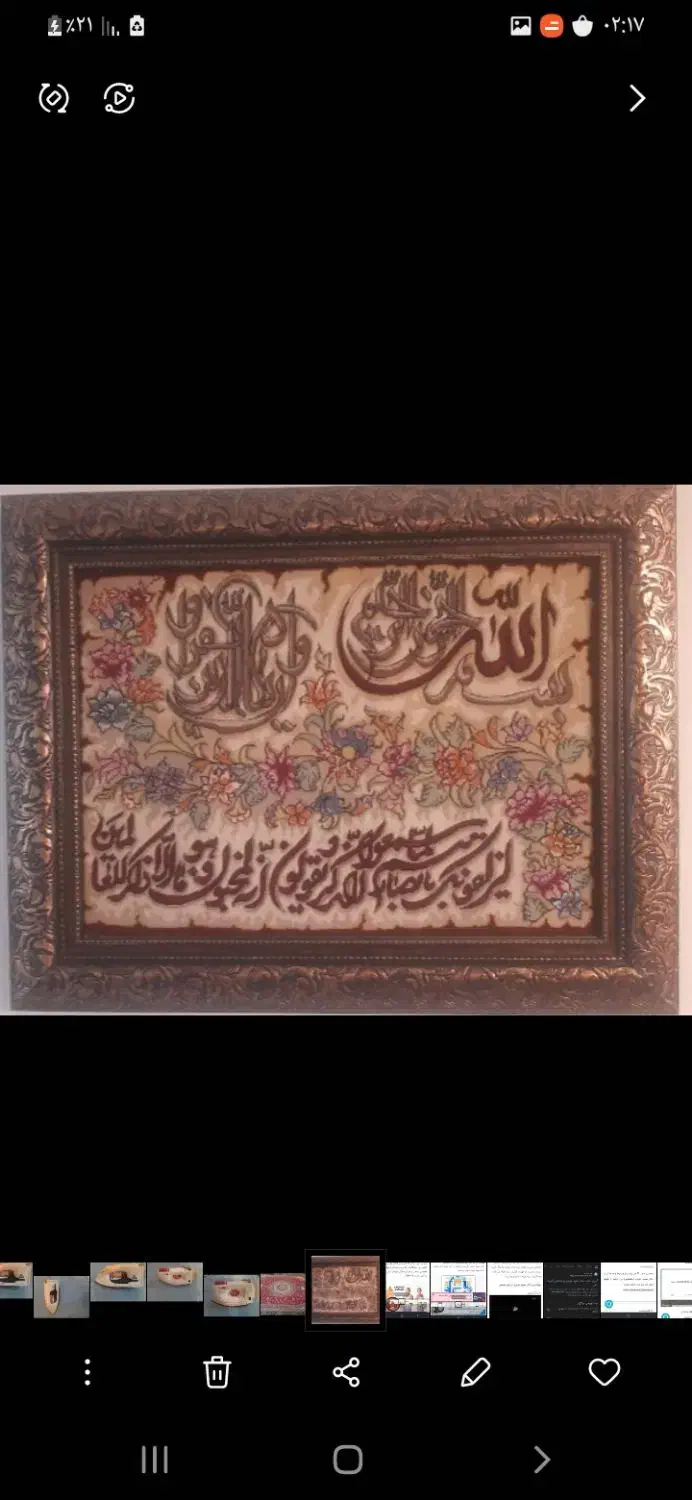 ٪۲۱
۰۲:۱۷
بسم الله الرحمن الرحیم
وان یکاد الذین کفروا
لیزلقونک بابصارهم لما سمعوا الذکر و یقولون انه لمجنون و ما هو الا ذکر للعالمین